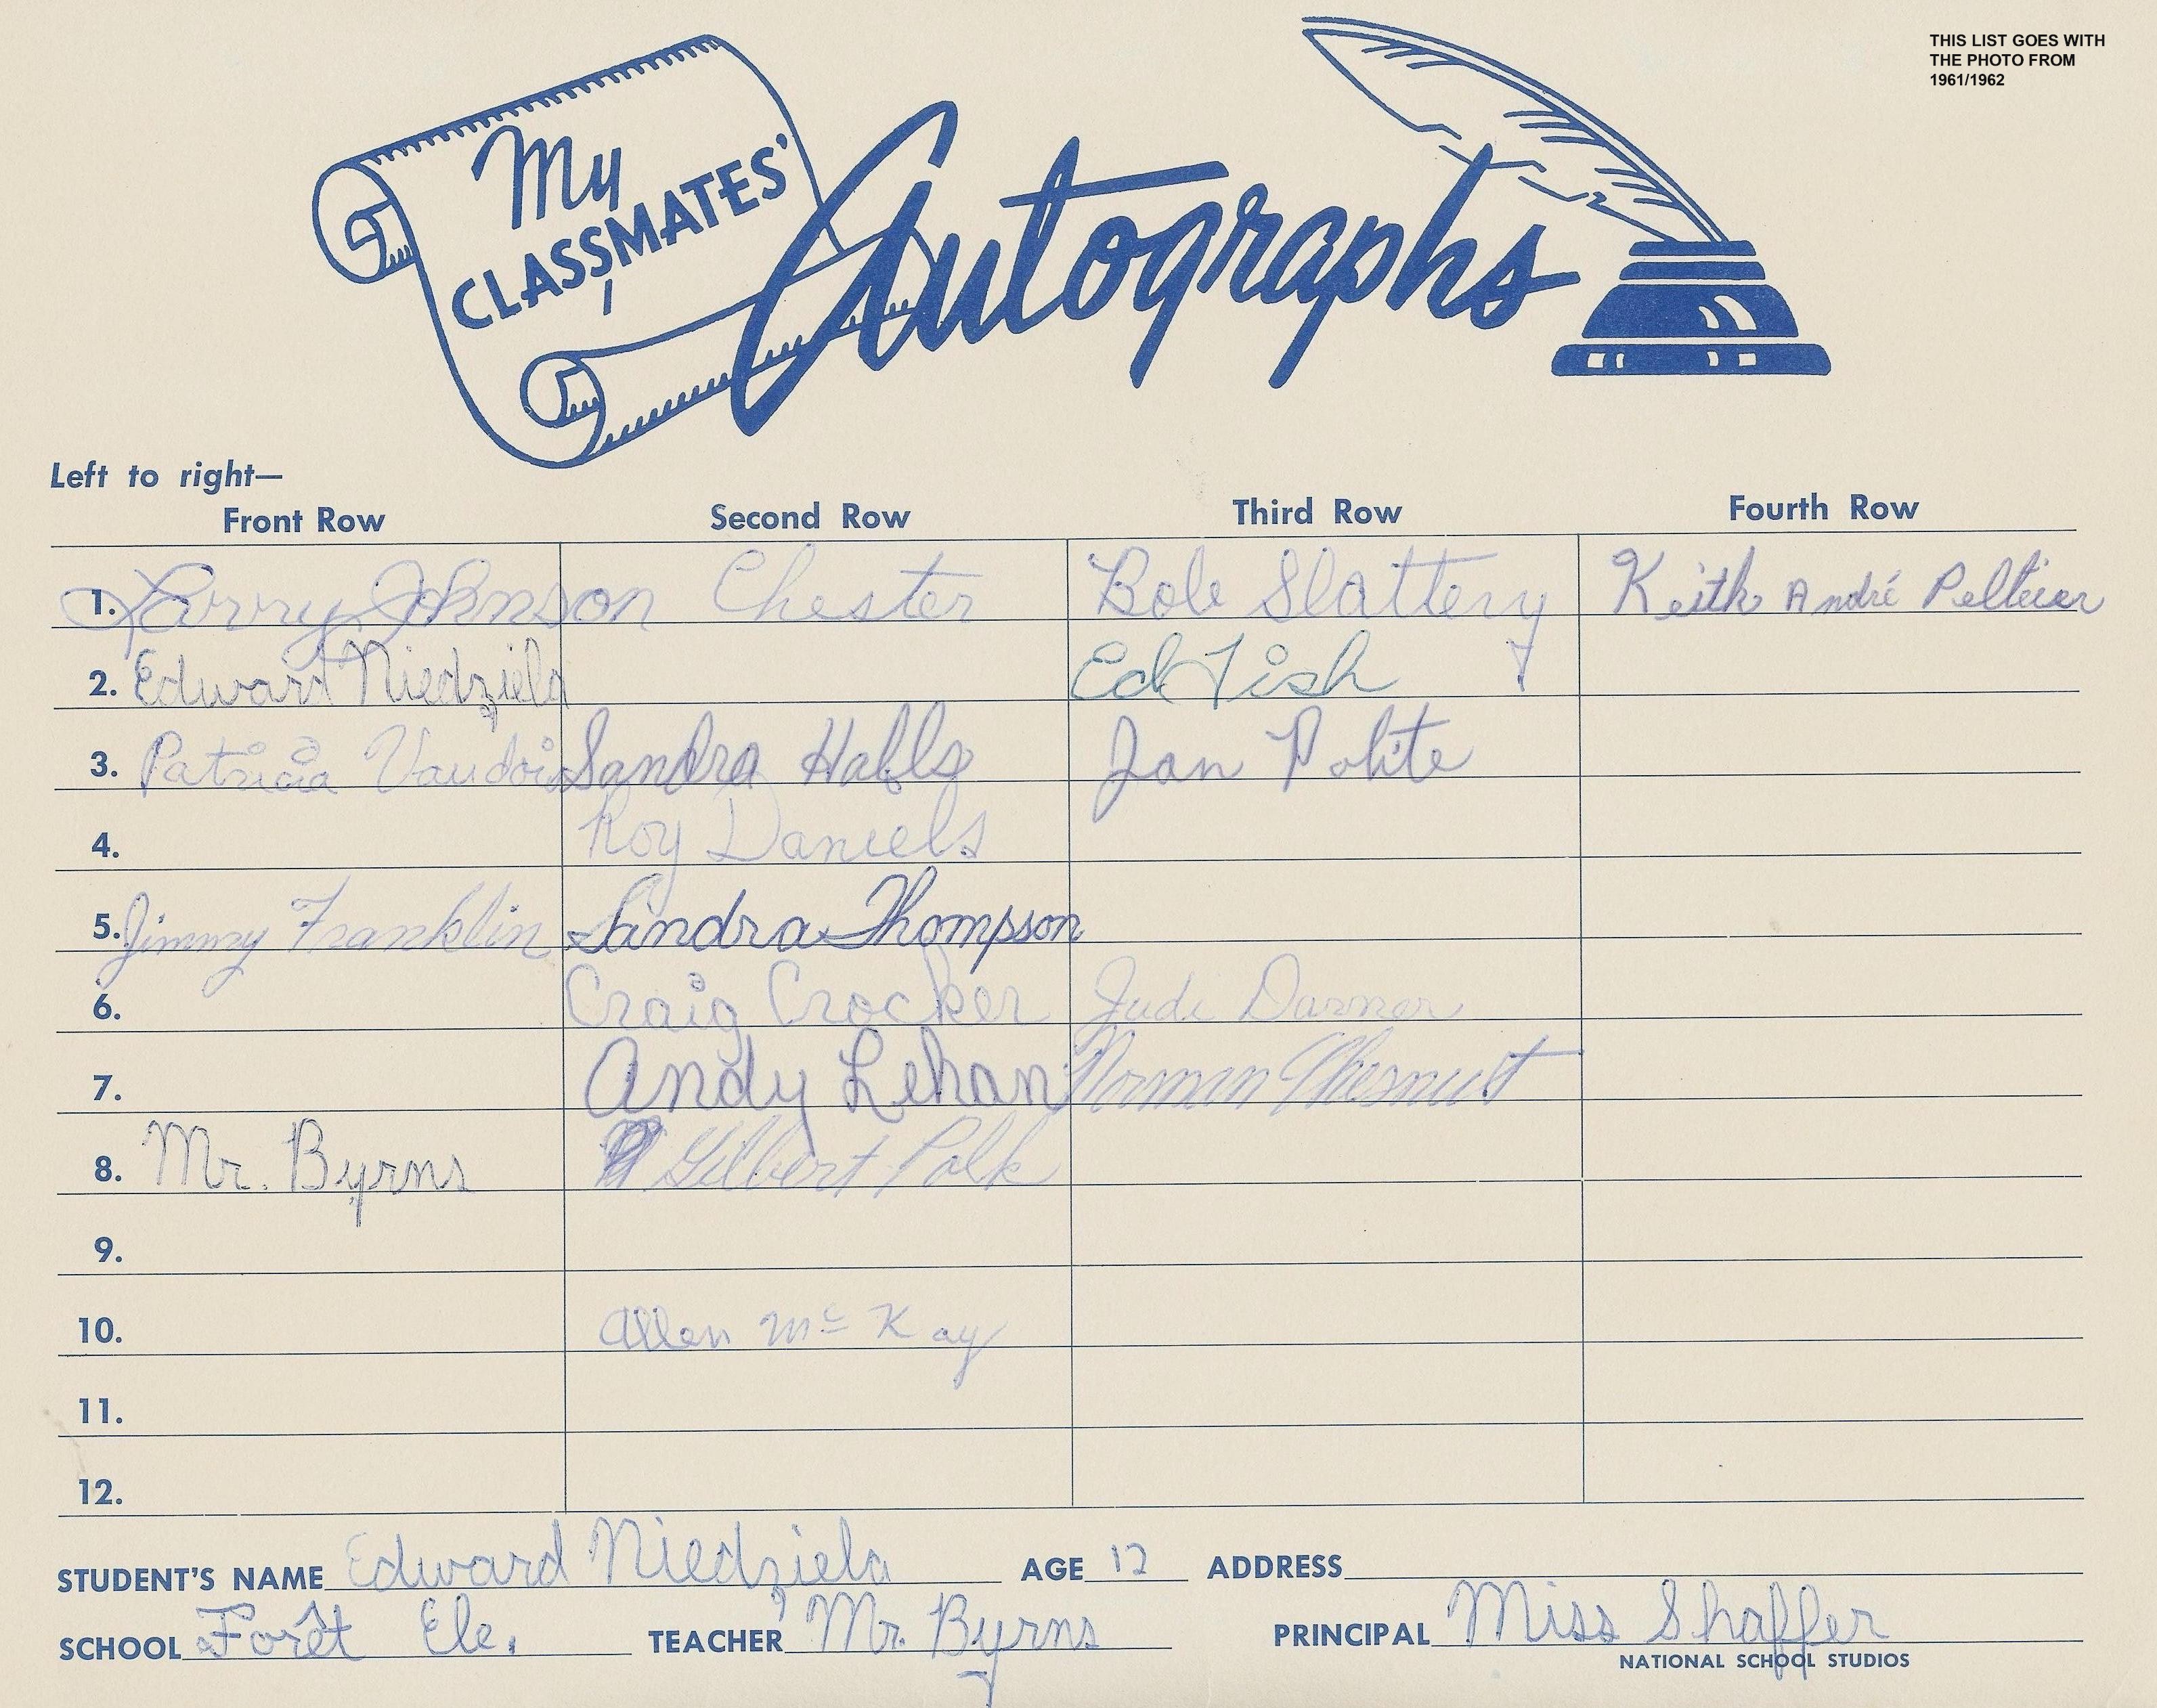 THIS LIST GOES WITH
THE PHOTO FROM
1961/1962
My
CLASSMATES'
Autographs
Left to right—
Front Row Second Row Third Row Fourth Row
1. Larry Johnson Chester Bob Slattery Keith André Peltier
2. Edward Niedziela Ed Fish
3. Patricia Vaudois Sandra Jan Polite
4. Roy Daniels
5. Jimmy Franklin Sandra Thompson
6. Craig Crocker Darner
7. Andy Lehan Norman Chesnutt
8. Mr. Byrns Gilbert Polk
9.
10. Allen Mc Kay
11.
12.
STUDENT'S NAME Edward Niedziela AGE 12 ADDRESS
SCHOOL Forêt Ele. TEACHER Mr. Byrns PRINCIPAL Miss Shaffer
NATIONAL SCHOOL STUDIOS